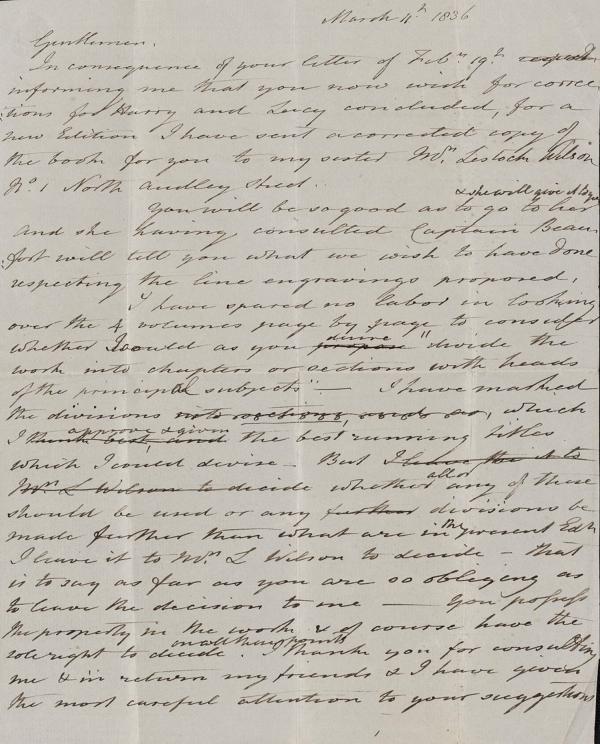 March 11th 1836
Gentlemen.
In consequence of your letter of Feby 19th
informing me that you now wish for correc-
tions for Harry and Lucy concluded, for a
new Edition I have sent a corrected copy of
the book for you to my sister Mrs. Lestock Wilson
No. 1 North Audley Street.
& she will give it to you
You will be so good as to go to her
and she having consulted Captain Beau-
fort will tell you what we wish to have done
respecting the line engravings proposed.
I have spared no labor in looking
over the 4 volumes page by page to consider
desire
whether I could as you propose "divide the
work into chapters or sections with heads
of the principal subjects" — I have marked
the divisions into sections, and so, which
approve & given
I think best, and the best running titles
which I could devise — But I leave this to
all or
Mrs. L Wilson to decide whether any of these
should be used or any further divisions be
made further than what are in the present Edn
I leave it to Mrs. L Wilson to decide — that
is to say as far as you are so obliging as
to leave the decision to me — You possess
the property in the work & of course have the
on all these points
sole right to decide. I thank you for consulting
me & in return my friends & I have given
the most careful attention to your suggestions